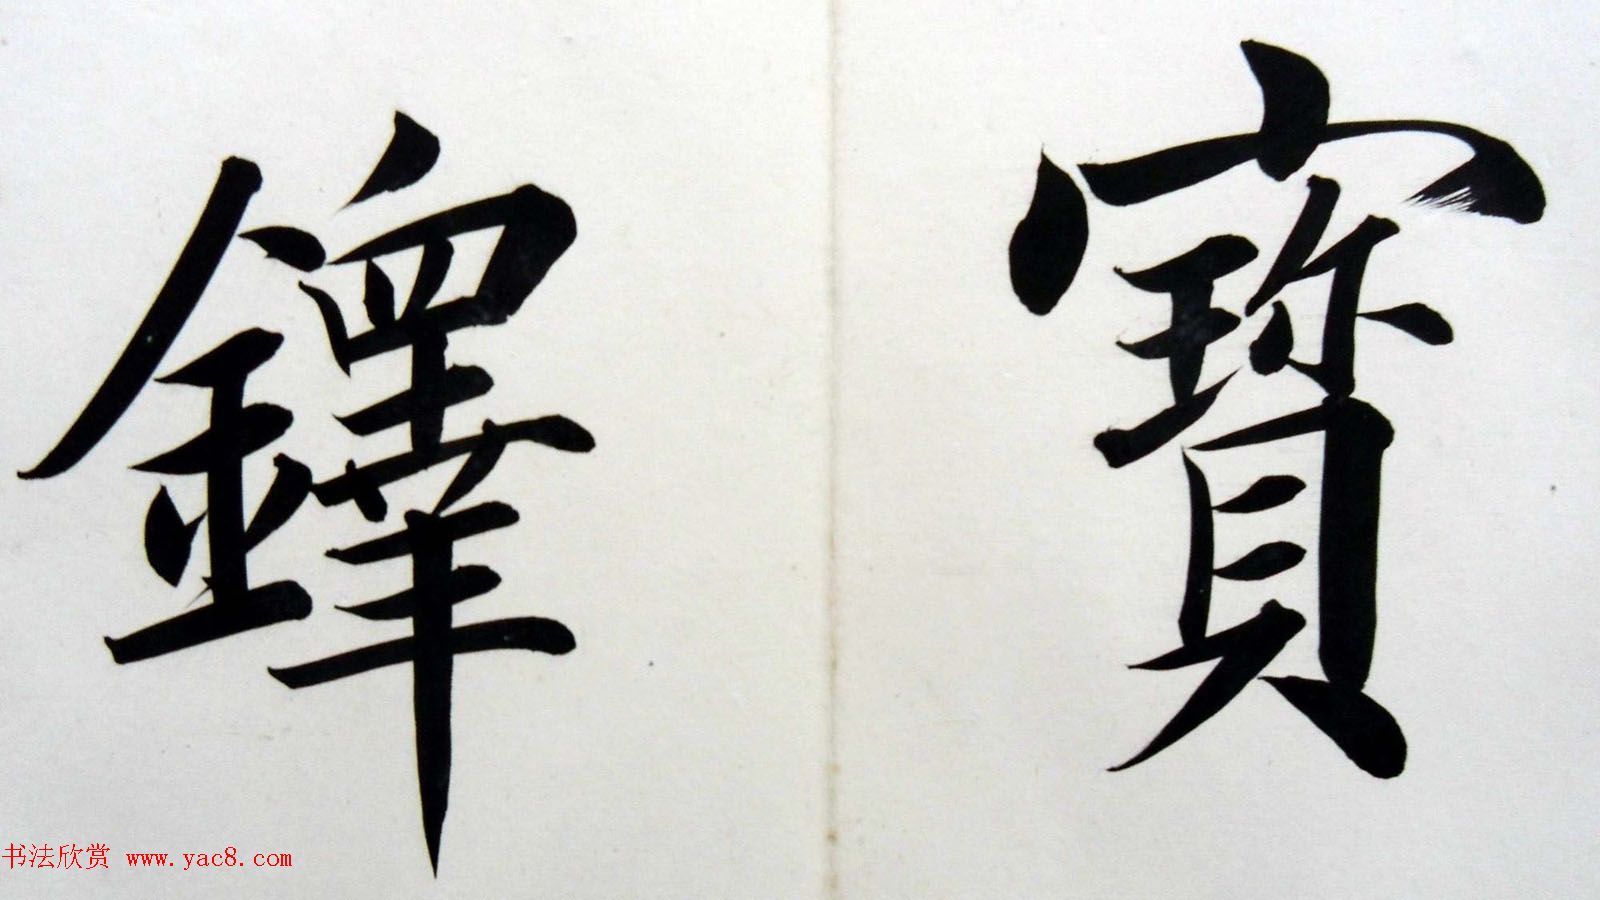 寳
鐸
书法欣赏 www.yac8.com